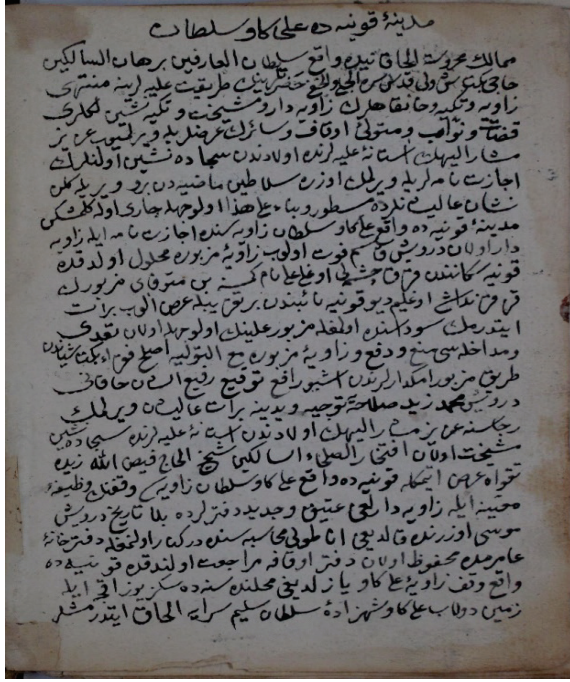 مدينهٔ قونيه ده على كاو سلطان
ممالك محروسة الخاقانيده واقع سلطان العارفين برهان السالكين
حاجى بكتاش ولى قدس سره طريقت عليه لرينه منتمى
زاويه وتكيه وخانقاهلرك زاويه دار ومشيخت وتكيه نشين لكلرى
قضات ونواب ومتولئ اوقاف وسائرك عرضلريله ويرلميوب عزيز
مشار اليهك استانهٔ عليه لرنده اولادندن سجاده نشين اولنلرك
اجازت نامه لريله ويرلمك اوزره سلاطين ماضيه دن برو ويريله كلن
نشان عاليشانلرده مسطور وبناء على هذا اولوجهله جارى اوله كلمشكن
مدينهٔ قونيه ده واقع على كاو سلطان زاويه سنده اجازت نامه ايله زاويه
دار اولان درويش قاسم فوت اولوب زاويهٔ مزبوره محلول اولدقده
قونيه سكانندن اوغلى على نام كمسنه بن متوفاى مزبورك
قرقرنداش اوغليم ديو قونيه نائبندن برتقريبله عرض الوب برات
ايتدرمك سوداسنده اولمغله مزبور علينك اولوجهله اولان تعدى
ومداخله سى منع ودفع وزاويهٔ مزبوره مع التوليه اصلح فقراء بكتاشياندن
طريق مزبور امكدارلرندن اشبو رافع توقيع رفيع الشان خاقانى
درويش محمد زيد صلاحه توجيه ويدينه برات عاليشان ويرلمك
رجاسنه عزيز مشار اليهك اولادندن استانهٔ عليه لرنده سجاده نشين
مشيخت اولان افتخار الصلحاء السالكين شيخ الحاج فيض الله زيده
تقواه عرض ايتمكله قونيه ده واقع على كاو سلطان زاويه سى وقفنك وظيفهٔ
معينه ايله زاويه دارلغى عتيق وجديد دفترلرده بلا تاريخ درويش
موسى اوزرنده قالديغى اناطولى محاسبه سنده دركنار اولنمغله دفترخانهٔ
عامره مده محفوظ اولان دفتر اوقافه مراجعت اولندقده قونيه ده
واقع وقف زاويهٔ على كاو يازلديغى محلنده سنه ده سكز يوز اقچه ايله
زمين دولاب على كاو شهزادهٔ سلطان سليم سرايه الحاق ايتدرمشلر